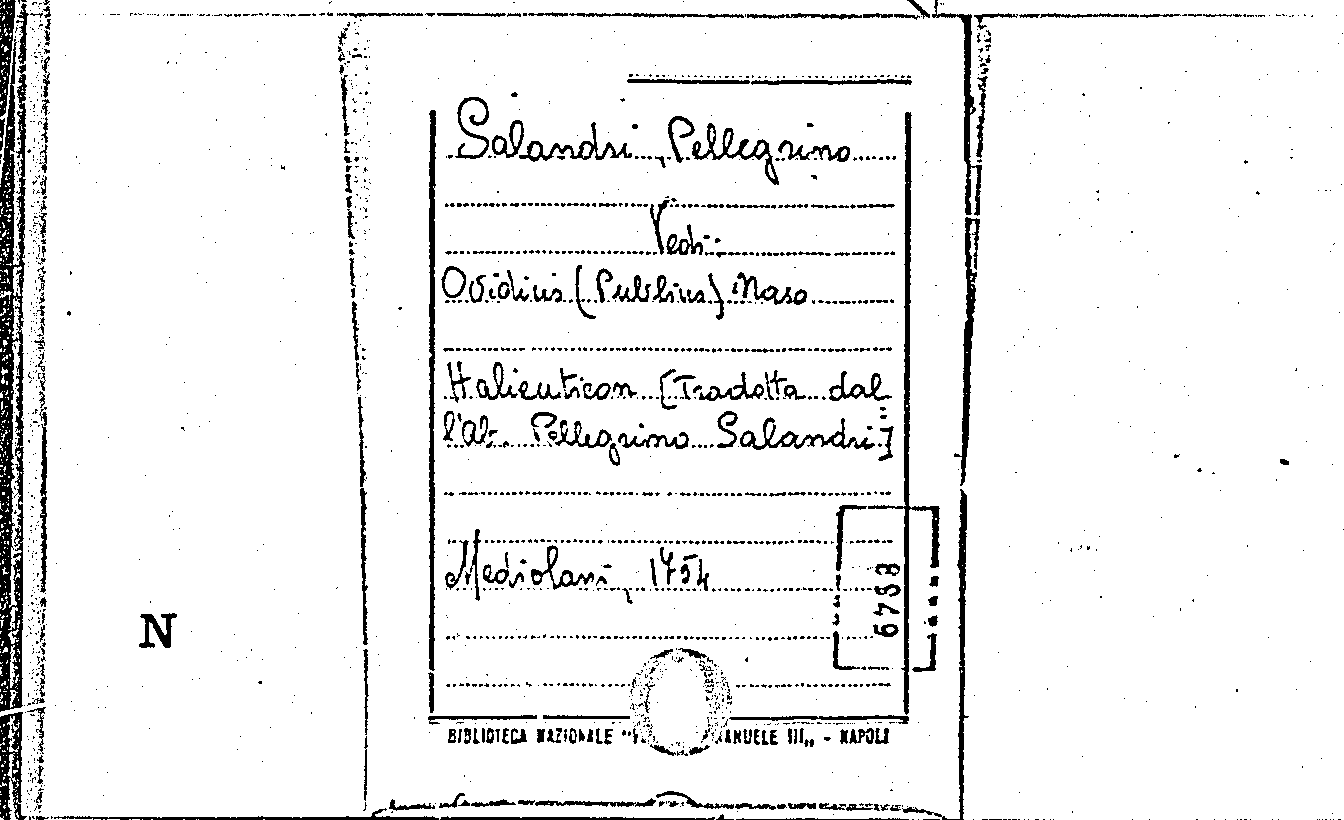 Salandri, Pellegrino
Vedi:
Ovidius (Publius) Naso
Halieuticon [Tradotta dal
l'Ab. Pellegrino Salandri]
Mediolani, 1754
N
BIBLIOTECA NAZIONALE "V ANUELE III„ - NAPOLI